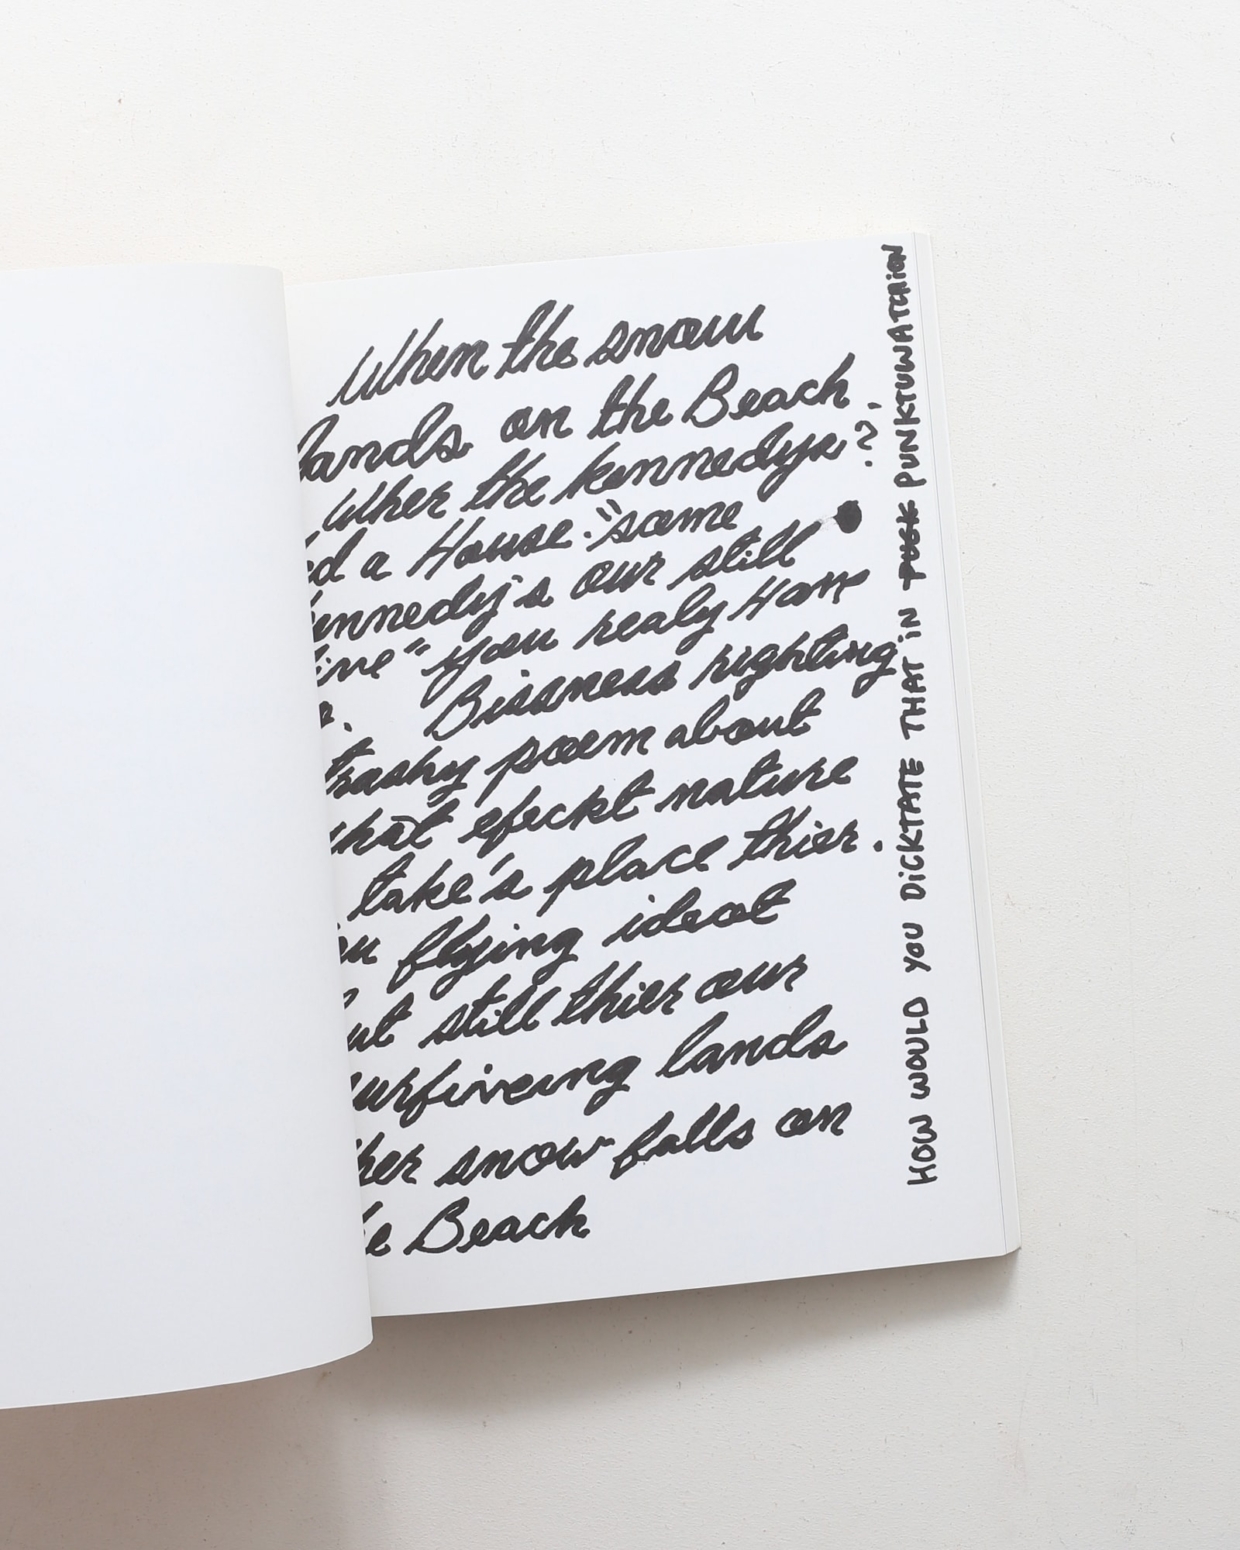 When the snow
lands on the Beach
Wher the kennedys
a House. "some
kennedy's our still
" you realy Hav
Bissness righting
trashy poem about
what efeckt nature
take's place thier.
flying ideot
but still thier our
surfiveing lands
snow falls on
Beach
HOW WOULD YOU DiCKTATE THAT iN PUNKTUWATCHiON